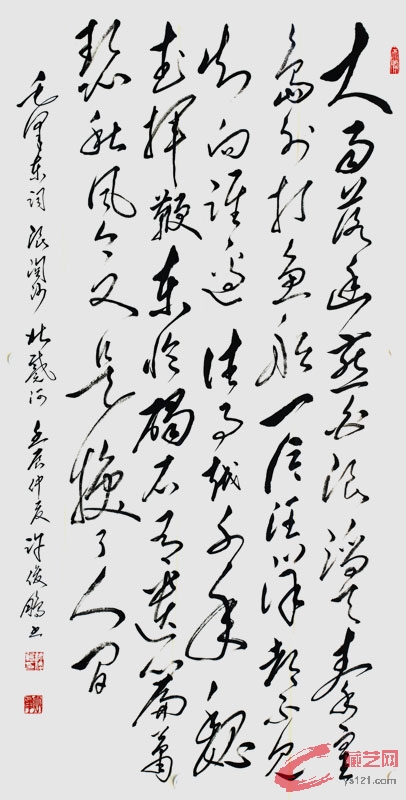 大雨落幽燕白浪滔天秦皇
岛外打鱼船一片汪洋都不见
知向谁边往事越千年魏
武挥鞭东临碣石有遗篇萧
瑟秋风今又是换了人间
毛泽东词浪淘沙北戴河壬辰仲夏许俊鹏书
ys121.com